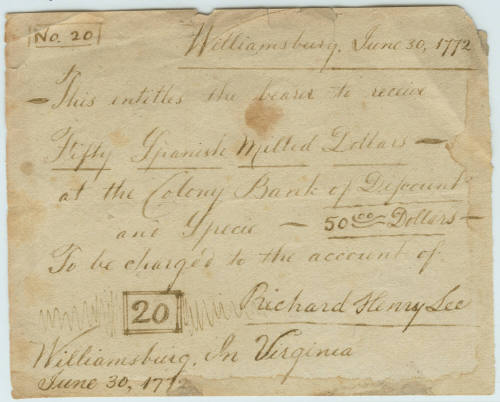 No. 20
Williamsburg, June 30, 1772
This entitles the bearer to receive
Fifty Spanish Milled Dollars
at the Colony Bank of Discount
and Specie — 50 00 Dollars —
To be charg'd to the account of
20
Richard Henry Lee
Williamsburg, In Virginia
June 30, 1772